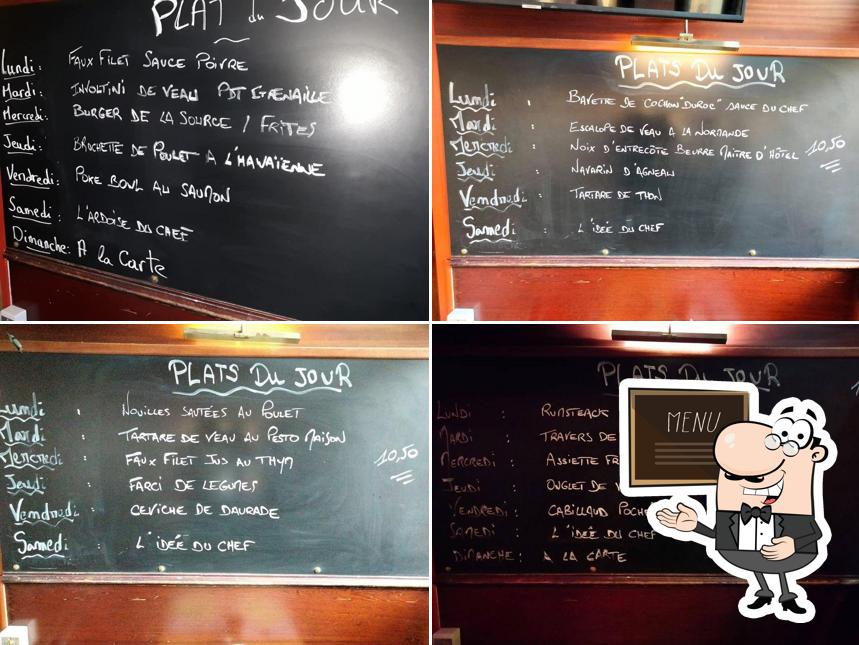 PLAT du JOUR
Lundi : FAUX FILET SAUCE POIVRE
Mardi : INVOLTINI DE VEAU PDT GRENAILLE
Mercredi : BURGER DE LA SOURCE / FRITES
Jeudi : BROCHETTE DE POULET A L'HAVAÏENNE
Vendredi : POKE BOWL AU SAUMON
Samedi : L'ARDOISE DU CHEF
Dimanche : A la Carte
PLATS DU JOUR
Lundi : BAVETTE DE COCHON "DUROC" SAUCE DU CHEF
Mardi : ESCALOPE DE VEAU A LA NORMANDE
Mercredi : NOIX D'ENTRECÔTE BEURRE MAÎTRE D'HÔTEL 10,50
Jeudi : NAVARIN D'AGNEAU
Vendredi : TARTARE DE THON
Samedi : L'IDÉE DU CHEF
PLATS DU JOUR
Lundi : NOUILLES SAUTÉES AU POULET
Mardi : TARTARE DE VEAU AU PESTO MAISON
Mercredi : FAUX FILET JUS AU THYM 10,50
Jeudi : FARCI DE LEGUMES
Vendredi : CEVICHE DE DAURADE
Samedi : L'IDÉE DU CHEF
PLATS DU JOUR
LUNDI : RUMSTEACK
MARDI : TRAVERS DE
MERCREDI : ASSIETTE
JEUDI : ONGLET DE
VENDREDI : CABILLAUD
SAMEDI : L'IDÉE DU CHEF
DIMANCHE : A LA CARTE
MENU